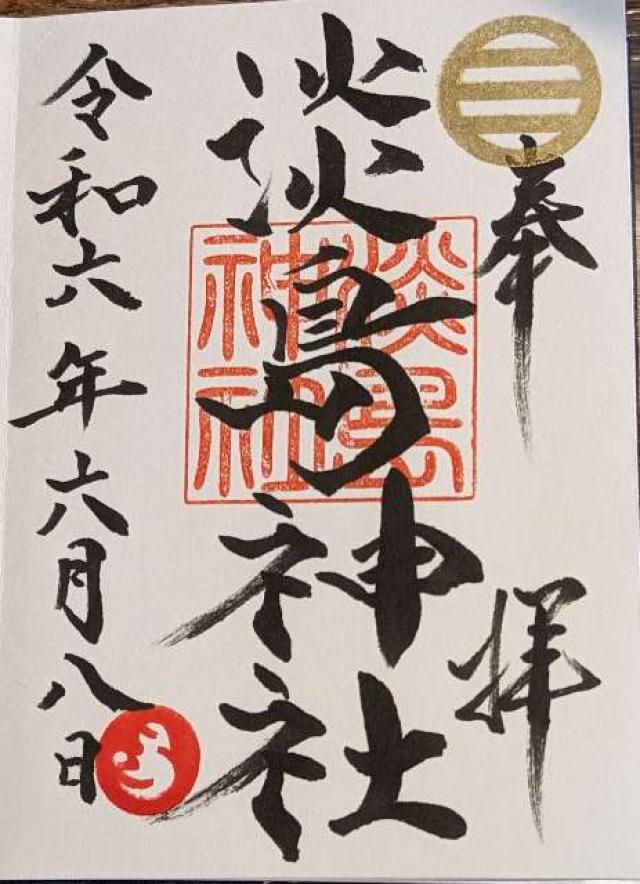 奉拝
淡島神社
淡島神社
令和六年六月八日